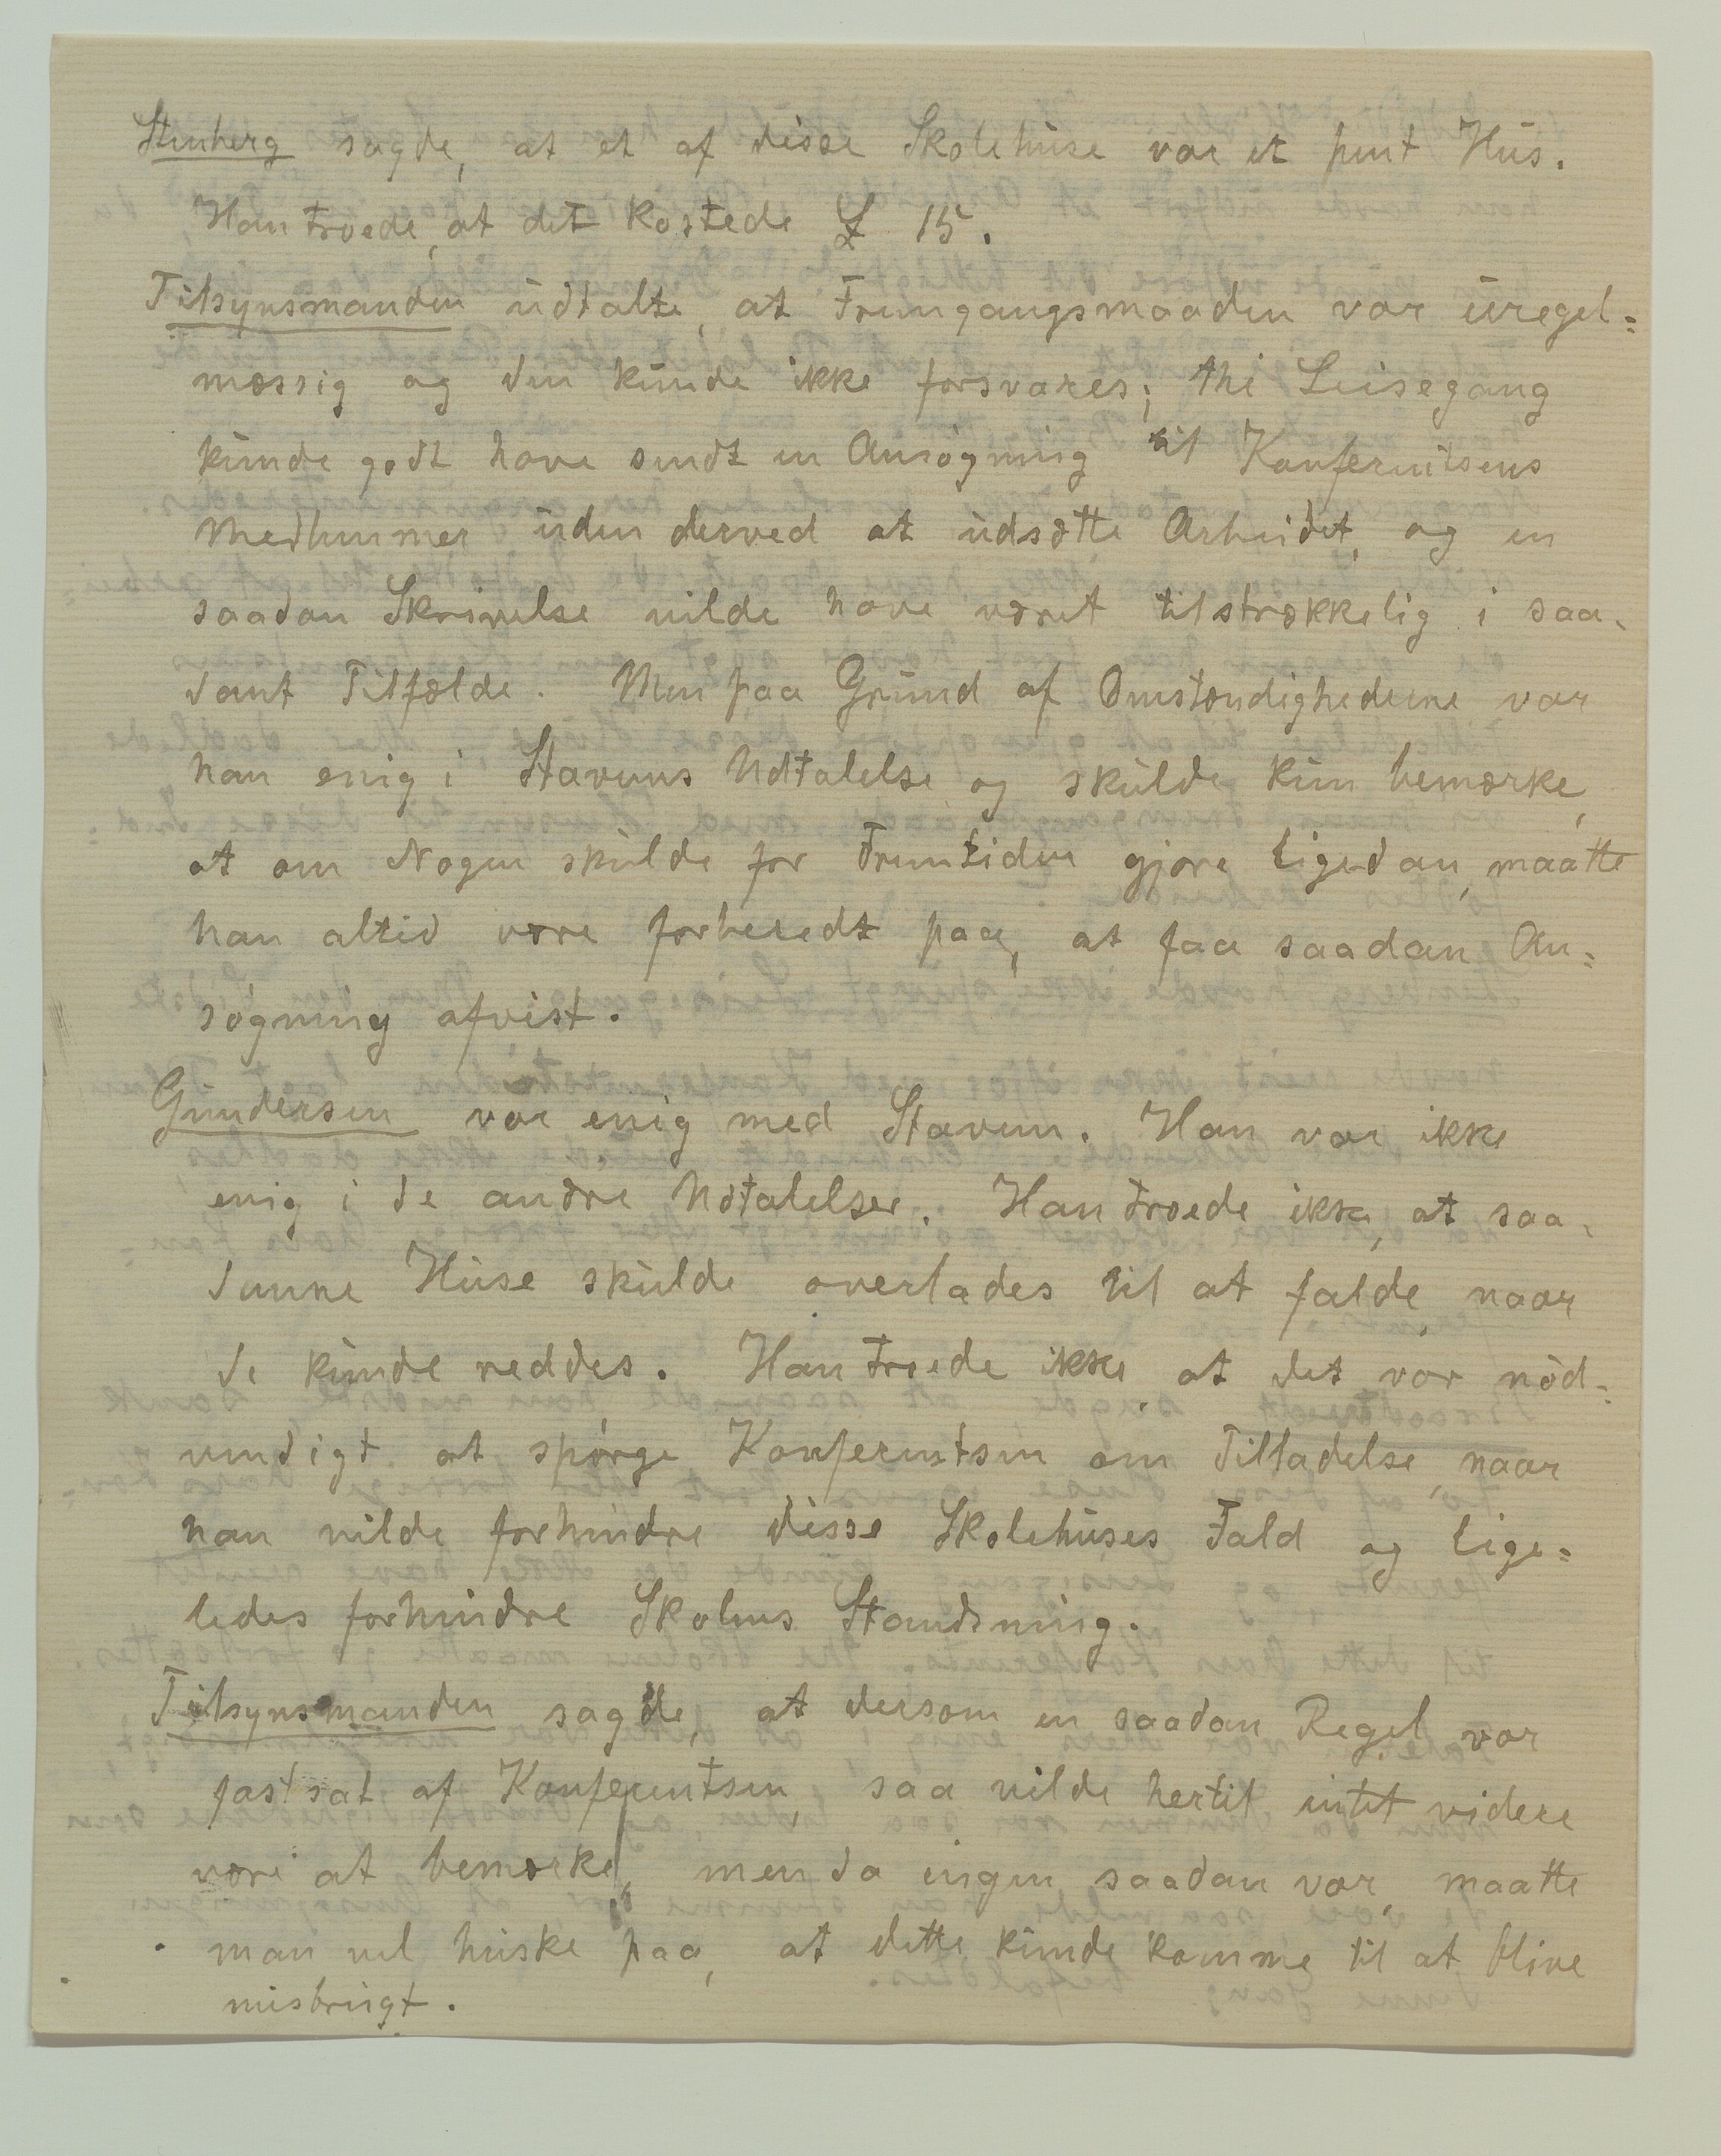 Stenberg sagde, at et af disse Skolehuse var et pent Hus.
Han troede, at det kostede £ 15.
Tilsynsmanden udtalte, at Fremgangsmaaden var uregel=
mæssig og den kunde ikke forsvares; thi Leisegang
kunde godt have sendt en Ansøgning til Konferentsens
Medlemmer uden derved at udsætte Arbeidet, og en
saadan Skrivelse vilde have været tilstrækkelig i saa-
dant Tilfælde. Men paa Grund af Omstændighederne var
han enig i Stavems Udtalelse og skulde kun bemærke,
at om Nogen skulde for Fremtiden gjøre ligedan, maatte
han altid være forberedt paa, at faa saadan An=
søgning afvist.
Gundersen var enig med Stavem. Han var ikke
enig i de andre Udtalelser. Han troede ikke, at saa-
danne Huse skulde overlades til at falde, naar
de kunde reddes. Han troede ikke at det var nød=
vendigt at spørge Konferentsen om Tilladelse, naar
han vilde forhindre disse Skolehuses Fald og lige=
ledes forhindre Skolens Standsning.
Tilsynsmanden sagde, at dersom en saadan Regel var
fastsat af Konferentsen, saa vilde hertil intet videre
være at bemærke, men da ingen saadan var, maatte
man vel huske paa, at dette kunde komme til at blive
misbrugt.